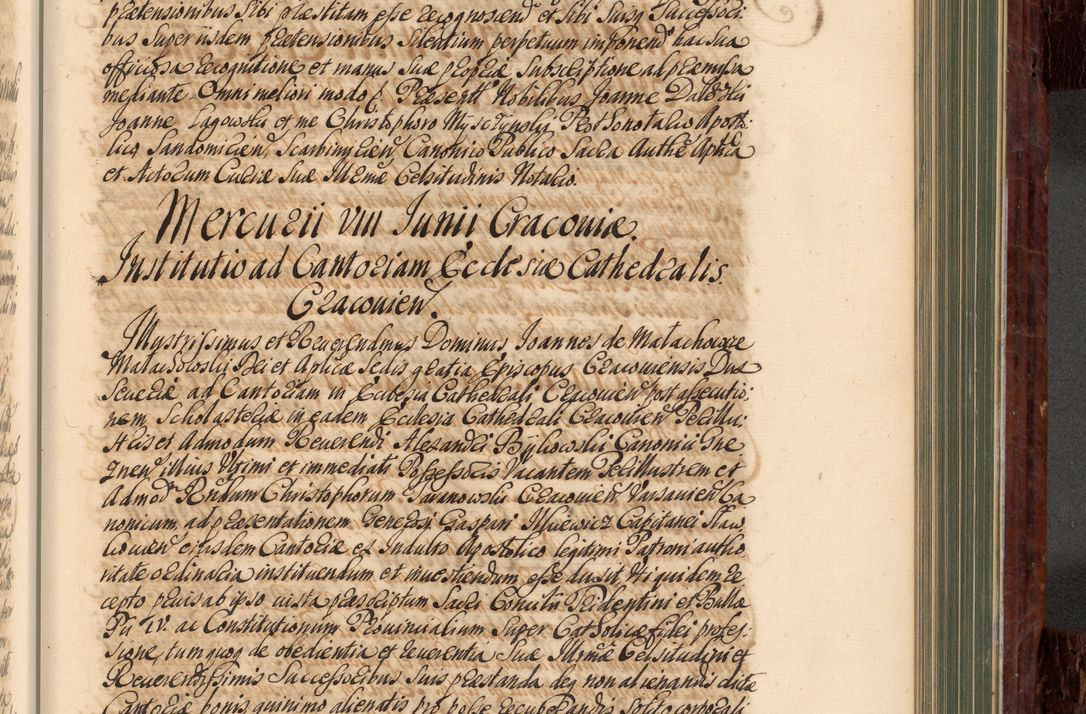 prætensionibus sibi præstitam esse recognoscend et sibi suisq Successori
bus super iisdem prætensionibus Silentium perpetuum imponend hac sua
officiosa recognitione et manus suæ propriæ subscriptione ad præmissa
mediante. Omni meliori modo p. Præsentt Nobilibus Joanne Dalewski
Joanne Lagowski et me Christophoro Myszczynski Prothonotario Apost
lico Sandomirien Scarbimirien Canonico Publico Sacra Authe Aplica
et Actorum Curiæ Suæ Illmæ Celsitudinis Notario.
Mercurii VIII Junii Cracoviæ.
Institutio ad Cantoriam Ecclesiæ Cathedralis
Cracovien.
Illustrissimus et Reverendimus Dominus Joannes de Malachowice
Malachowski Dei et Aplicæ Sedis gratia Episcopus Cracoviensis Dux
Severiæ ad Cantoriam in Ecclesia Cathedrali Cracovien post assecutio
nem Scholasteriæ in eadem Ecclesia Cathedrali Cracovien Perillu
stris et Admodum Reverendi Alexandri Bykowski Canonici Gne
znen illius Ultimi et immediati Possessoris Vacantem Perillustrem et
Admod Rndum Christophorum Cracovien Varsavien Ca
nonicum, ad præsentationem Generosi Gaspari Capitanei
ejusdem Cantoriæ ex Indulto Apostolico legitimi Patroni autho
ritate ordinaria instituendum et investiendum esse duxit. Ut quidem re
cepto prius ab ipso iuxta præscriptum Sacri Concilii Tridentini et Bullæ
Pii IV. ac Constitutionum Provincialium super Catholicæ fidei profes
sione, tum quoq de obedientia et reverentia Suæ Illrmæ Celsitudini et
Reverendissimis Successoribus suis præstanda deq non alienanis dictæ
Cantoriæ bonis quinimo alienatis pro posse recuperandis Solito corporali